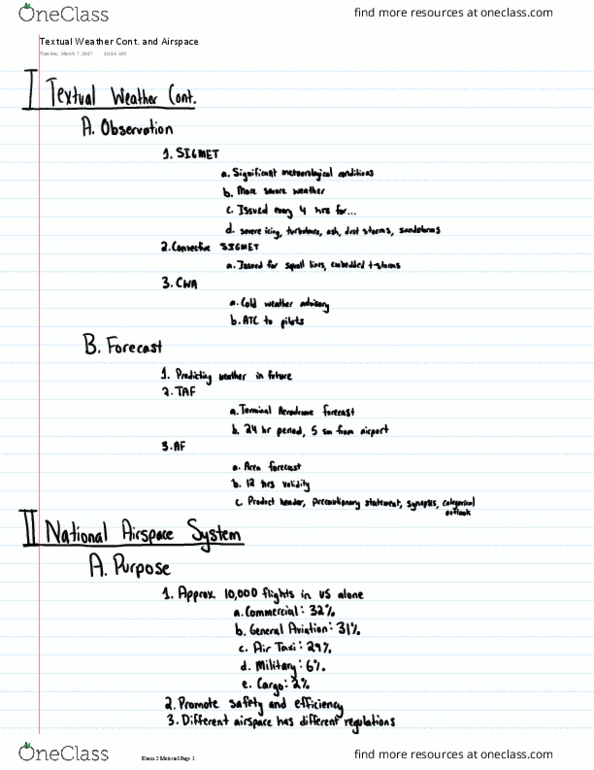 OneClass
find more resources at oneclass.com
Textual Weather Cont. and Airspace
Tuesday, March 7, 2017 10:03 AM
I Textual Weather Cont.
A. Observation
1. SIGMET
a. Significant meteorological conditions
b. More severe weather
c. Issued every 4 hrs for...
d. severe icing, turbulence, ash, dust storms, sandstorms
2. Convective SIGMET
a. Issued for squall lines, embedded t-storms
3. CWA
a. Cold weather advisory
b. ATC to pilots
B. Forecast
1. Predicting weather in future
2. TAF
a. Terminal Aerodrome forecast
b. 24 hr period, 5 sm from airport
3. AF
a. Area forecast
b. 12 hrs validity
c. Product header, precautionary statement, synopsis, categorical
outlook
II National Airspace System
A. Purpose
1. Approx. 10,000 flights in US alone
a. Commercial: 32%
b. General Aviation: 31%
c. Air Taxi: 29%
d. Military: 6%
e. Cargo: 2%
2. Promote safety and efficiency
3. Different airspace has different regulations
OneClass
Exam 2 Material Page 1
find more resources at oneclass.com